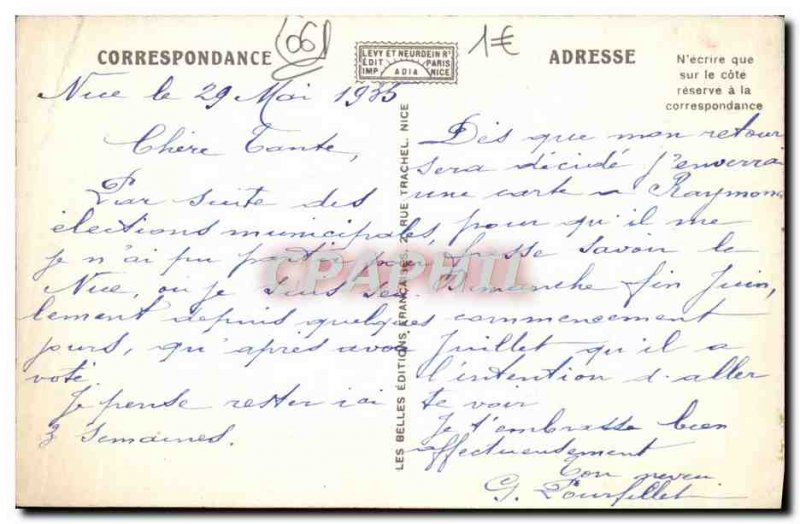 CORRESPONDANCE
06
LEVY ET NEURDEIN RS
EDIT PARIS
IMP. ADIA NICE
1€
ADRESSE
N'écrire que
sur le côté
réservé à la
correspondance
Nice le 29 Mai 1935
Chère Tante,
Par suite des
élections municipales,
je n'ai pu partir pour
Nice, où je suis seu-
lement depuis quelques
jours, qu'après avoir
voté.
Je pense rester ici
3 semaines.
LES BELLES ÉDITIONS FRANÇAISES, 2, RUE TRACHEL, NICE
CPAPHIL
Dès que mon retour
sera décidé j'enverrai
une carte a Raymond
pour qu'il me
fasse savoir le
Dimanche fin Juin,
commencement
Juillet qu'il a
l'intention d'aller
te voir
Je t'embrasse bien
affectueusement
Ton neveu
G.